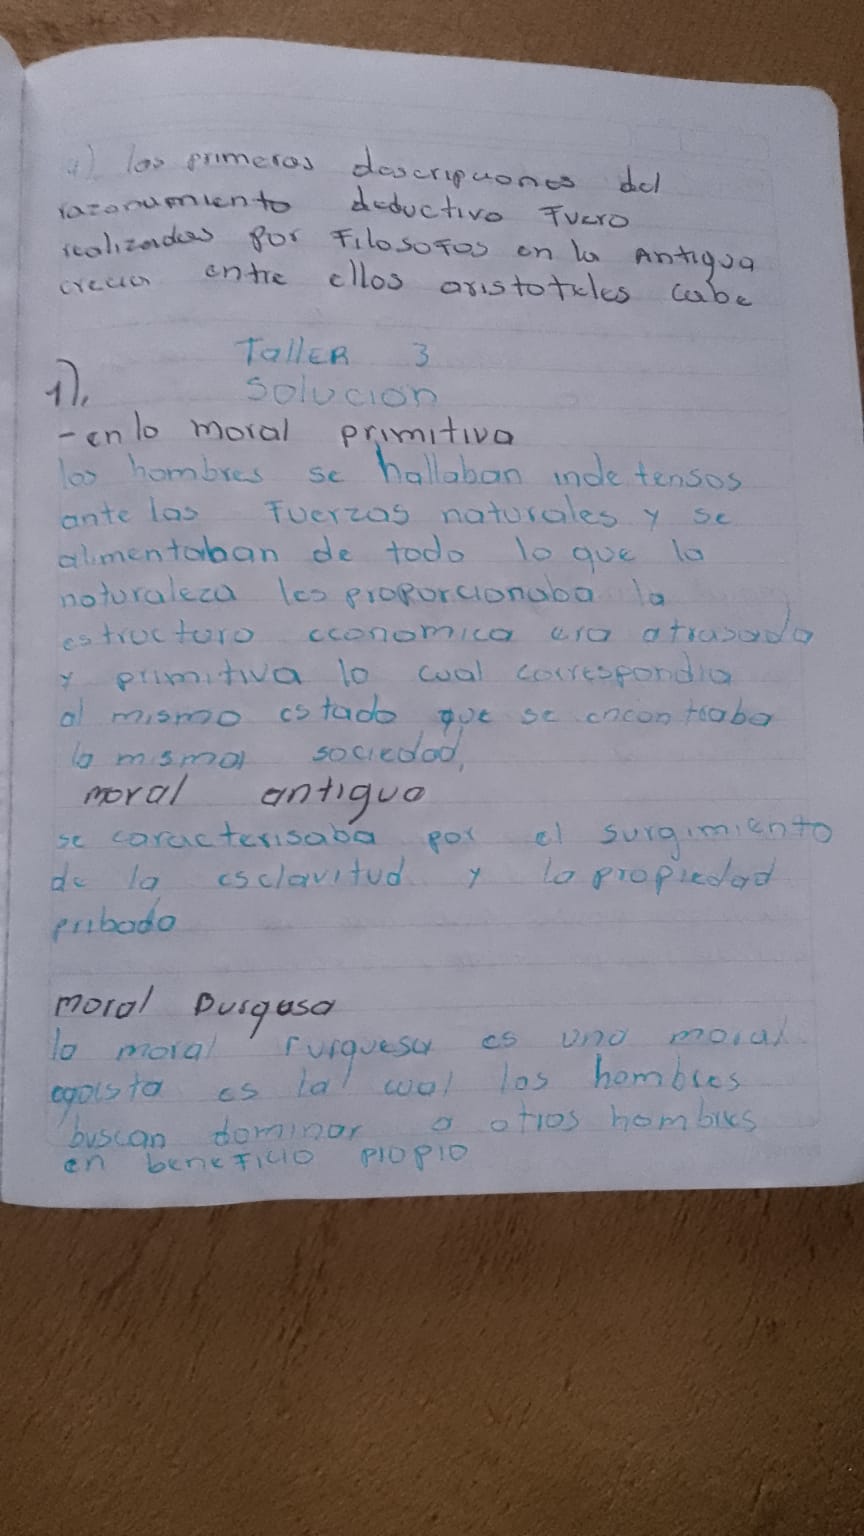 4) las primeras descripciones del
razonamiento deductivo Fuero
realizadas por Filosofos en la Antigua
crecia entre ellos aristoteles cabe
Taller 3
1). Solucion
- en lo moral primitiva
los hombres se hallaban indefensos
ante las Fuerzas naturales y se
alimentaban de todo lo que la
naturaleza les proporcionaba la
estructura economica era atrasada
y primitiva lo cual correspondia
al mismo estado que se encontraba
la misma sociedad,
moral antigua
se caracterisaba por el surgimiento
de la esclavitud y la propiedad
pribado
moral Burgesa
la moral Furguesa es una moral
egoista es la cual los hombres
buscan dominar a otros hombres
en beneFicio propio